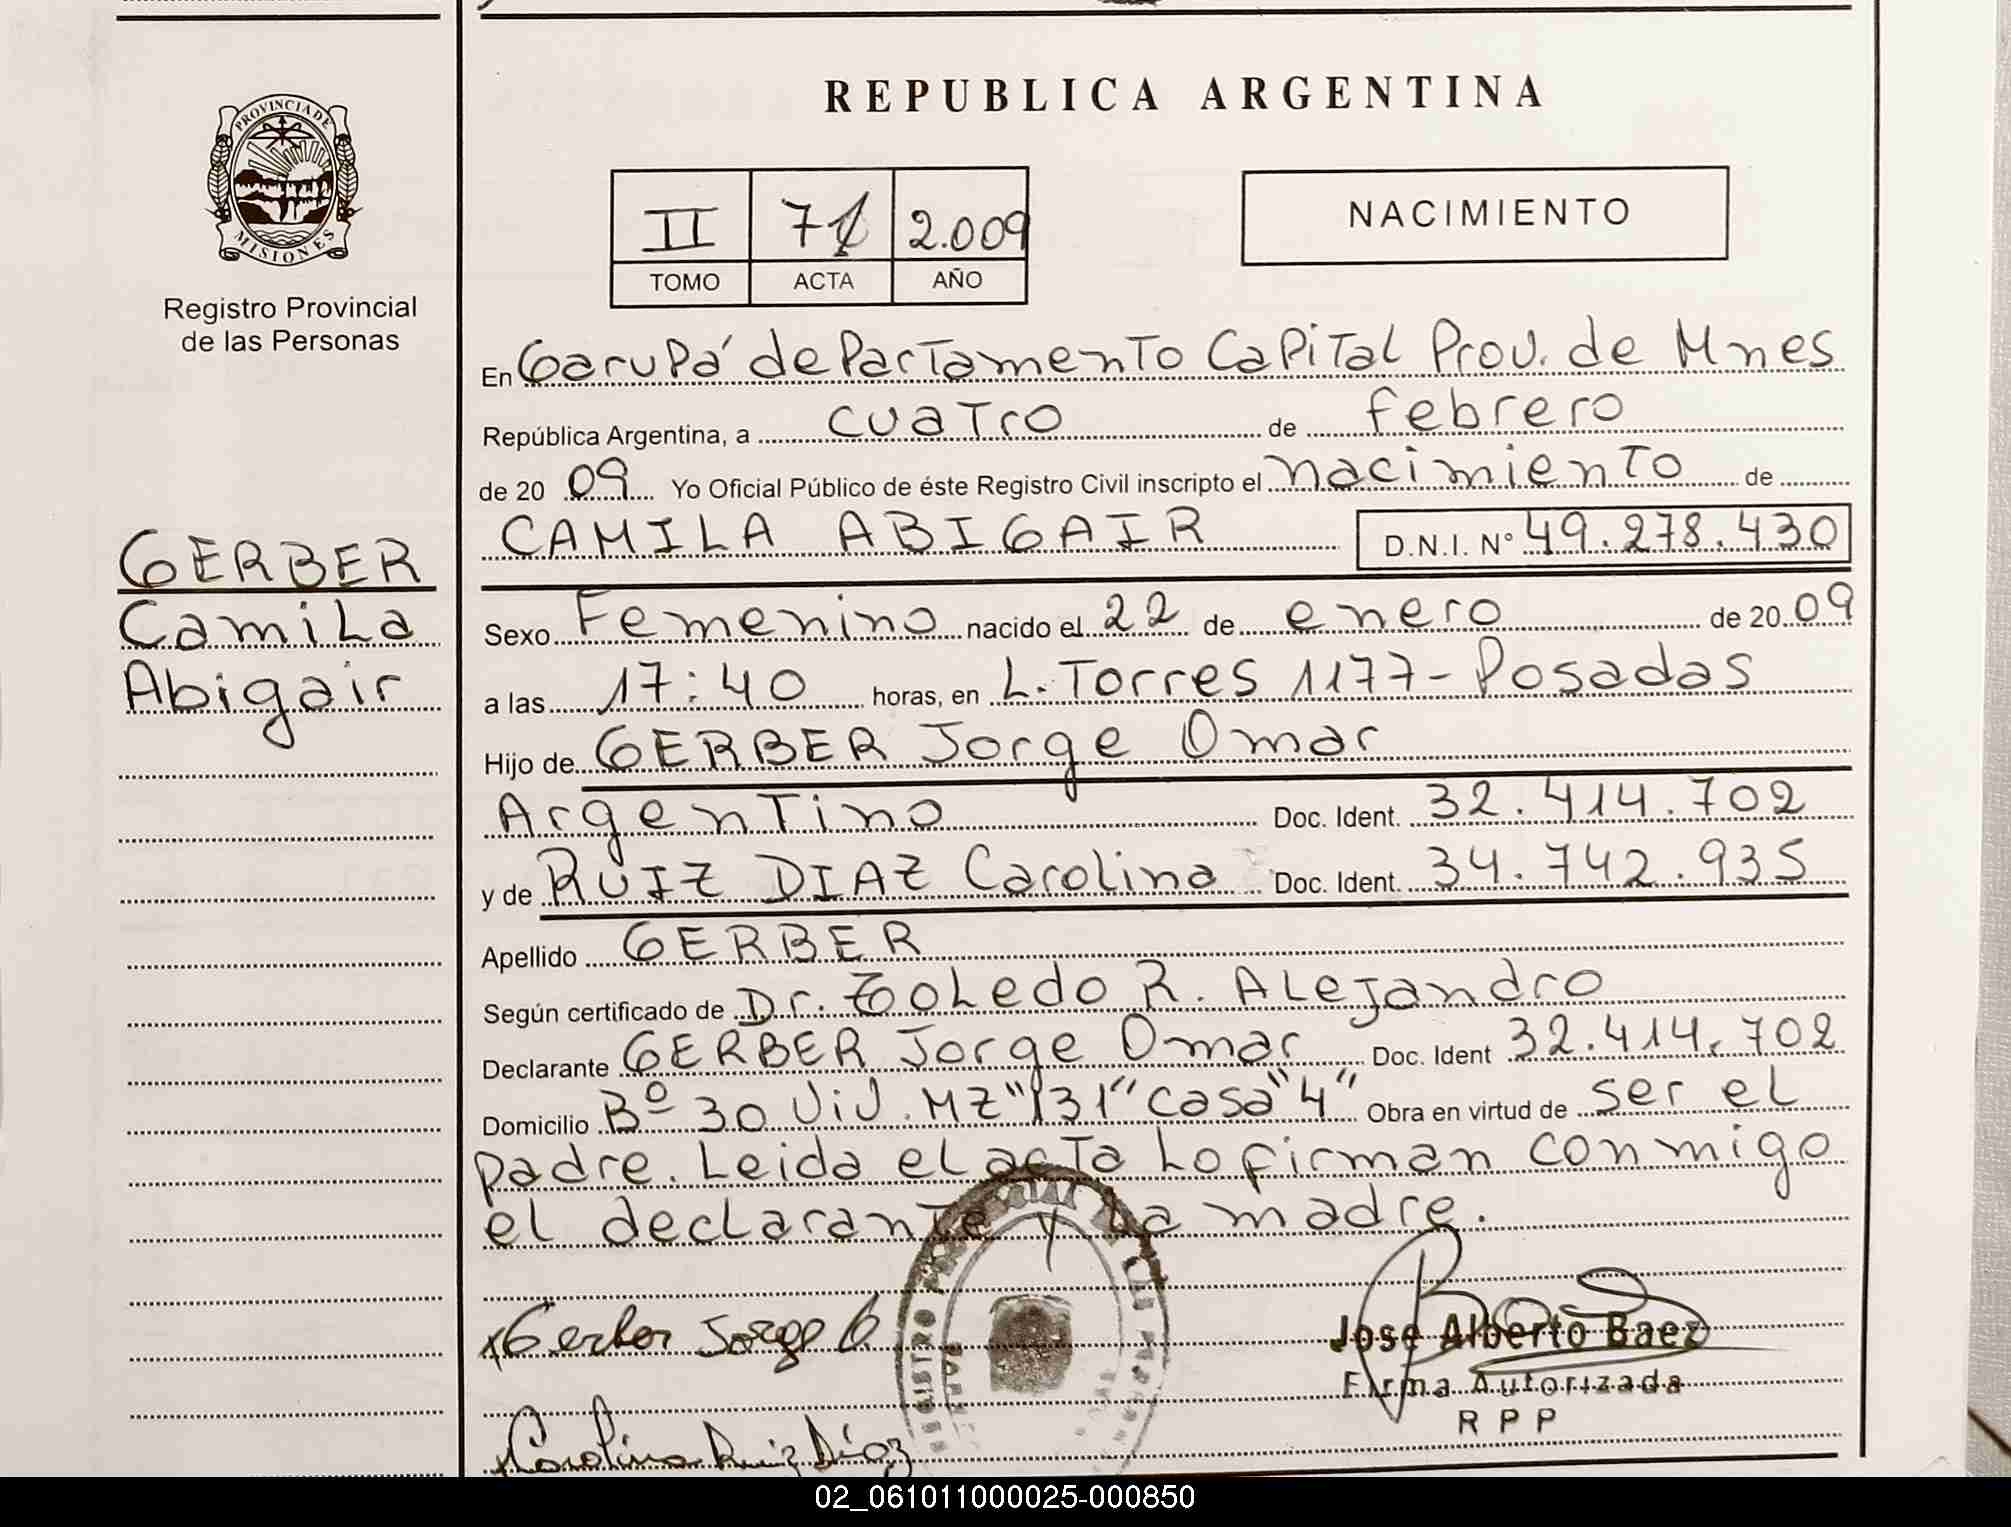 REPUBLICA ARGENTINA
PROVINCIA DE
MISIONES
Registro Provincial
de las Personas
II 71 2.009
TOMO ACTA AÑO
NACIMIENTO
En Garupá departamento Capital Prov. de Mnes
República Argentina, a cuatro de febrero
de 20 09 Yo Oficial Público de éste Registro Civil inscripto el nacimiento de
CAMILA ABIGAIR D.N.I. Nº 49.278.430
GERBER
Camila
Abigair
Sexo Femenino nacido el 22 de enero de 20 09
a las 17:40 horas, en L. Torres 1177 - Posadas
Hijo de GERBER Jorge Omar
Argentino Doc. Ident. 32.414.702
y de RUIZ DIAZ Carolina Doc. Ident. 34.742.935
Apellido GERBER
Según certificado de Dr. Toledo R. Alejandro
Declarante GERBER Jorge Omar Doc. Ident 32.414.702
Domicilio Bº 30 Viv. MZ "131" casa "4" Obra en virtud de ser el
padre. Leida el acta lo firman conmigo
el declarante y la madre.
Gerber Jorge O
Carolina Ruiz Díaz
REGISTRO
Jose Alberto Baez
Firma Autorizada
R P P
02_061011000025-000850